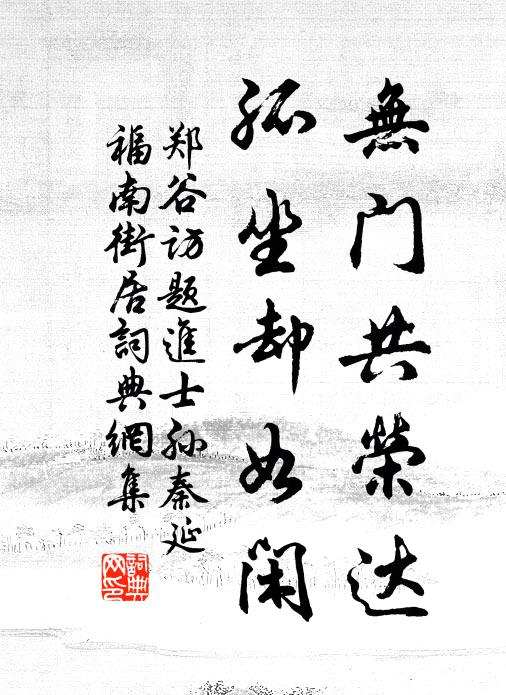 無门共荣达
孤坐却如闲
郑谷访题進士孙秦延
福南街居詞典網集
詞典
网印